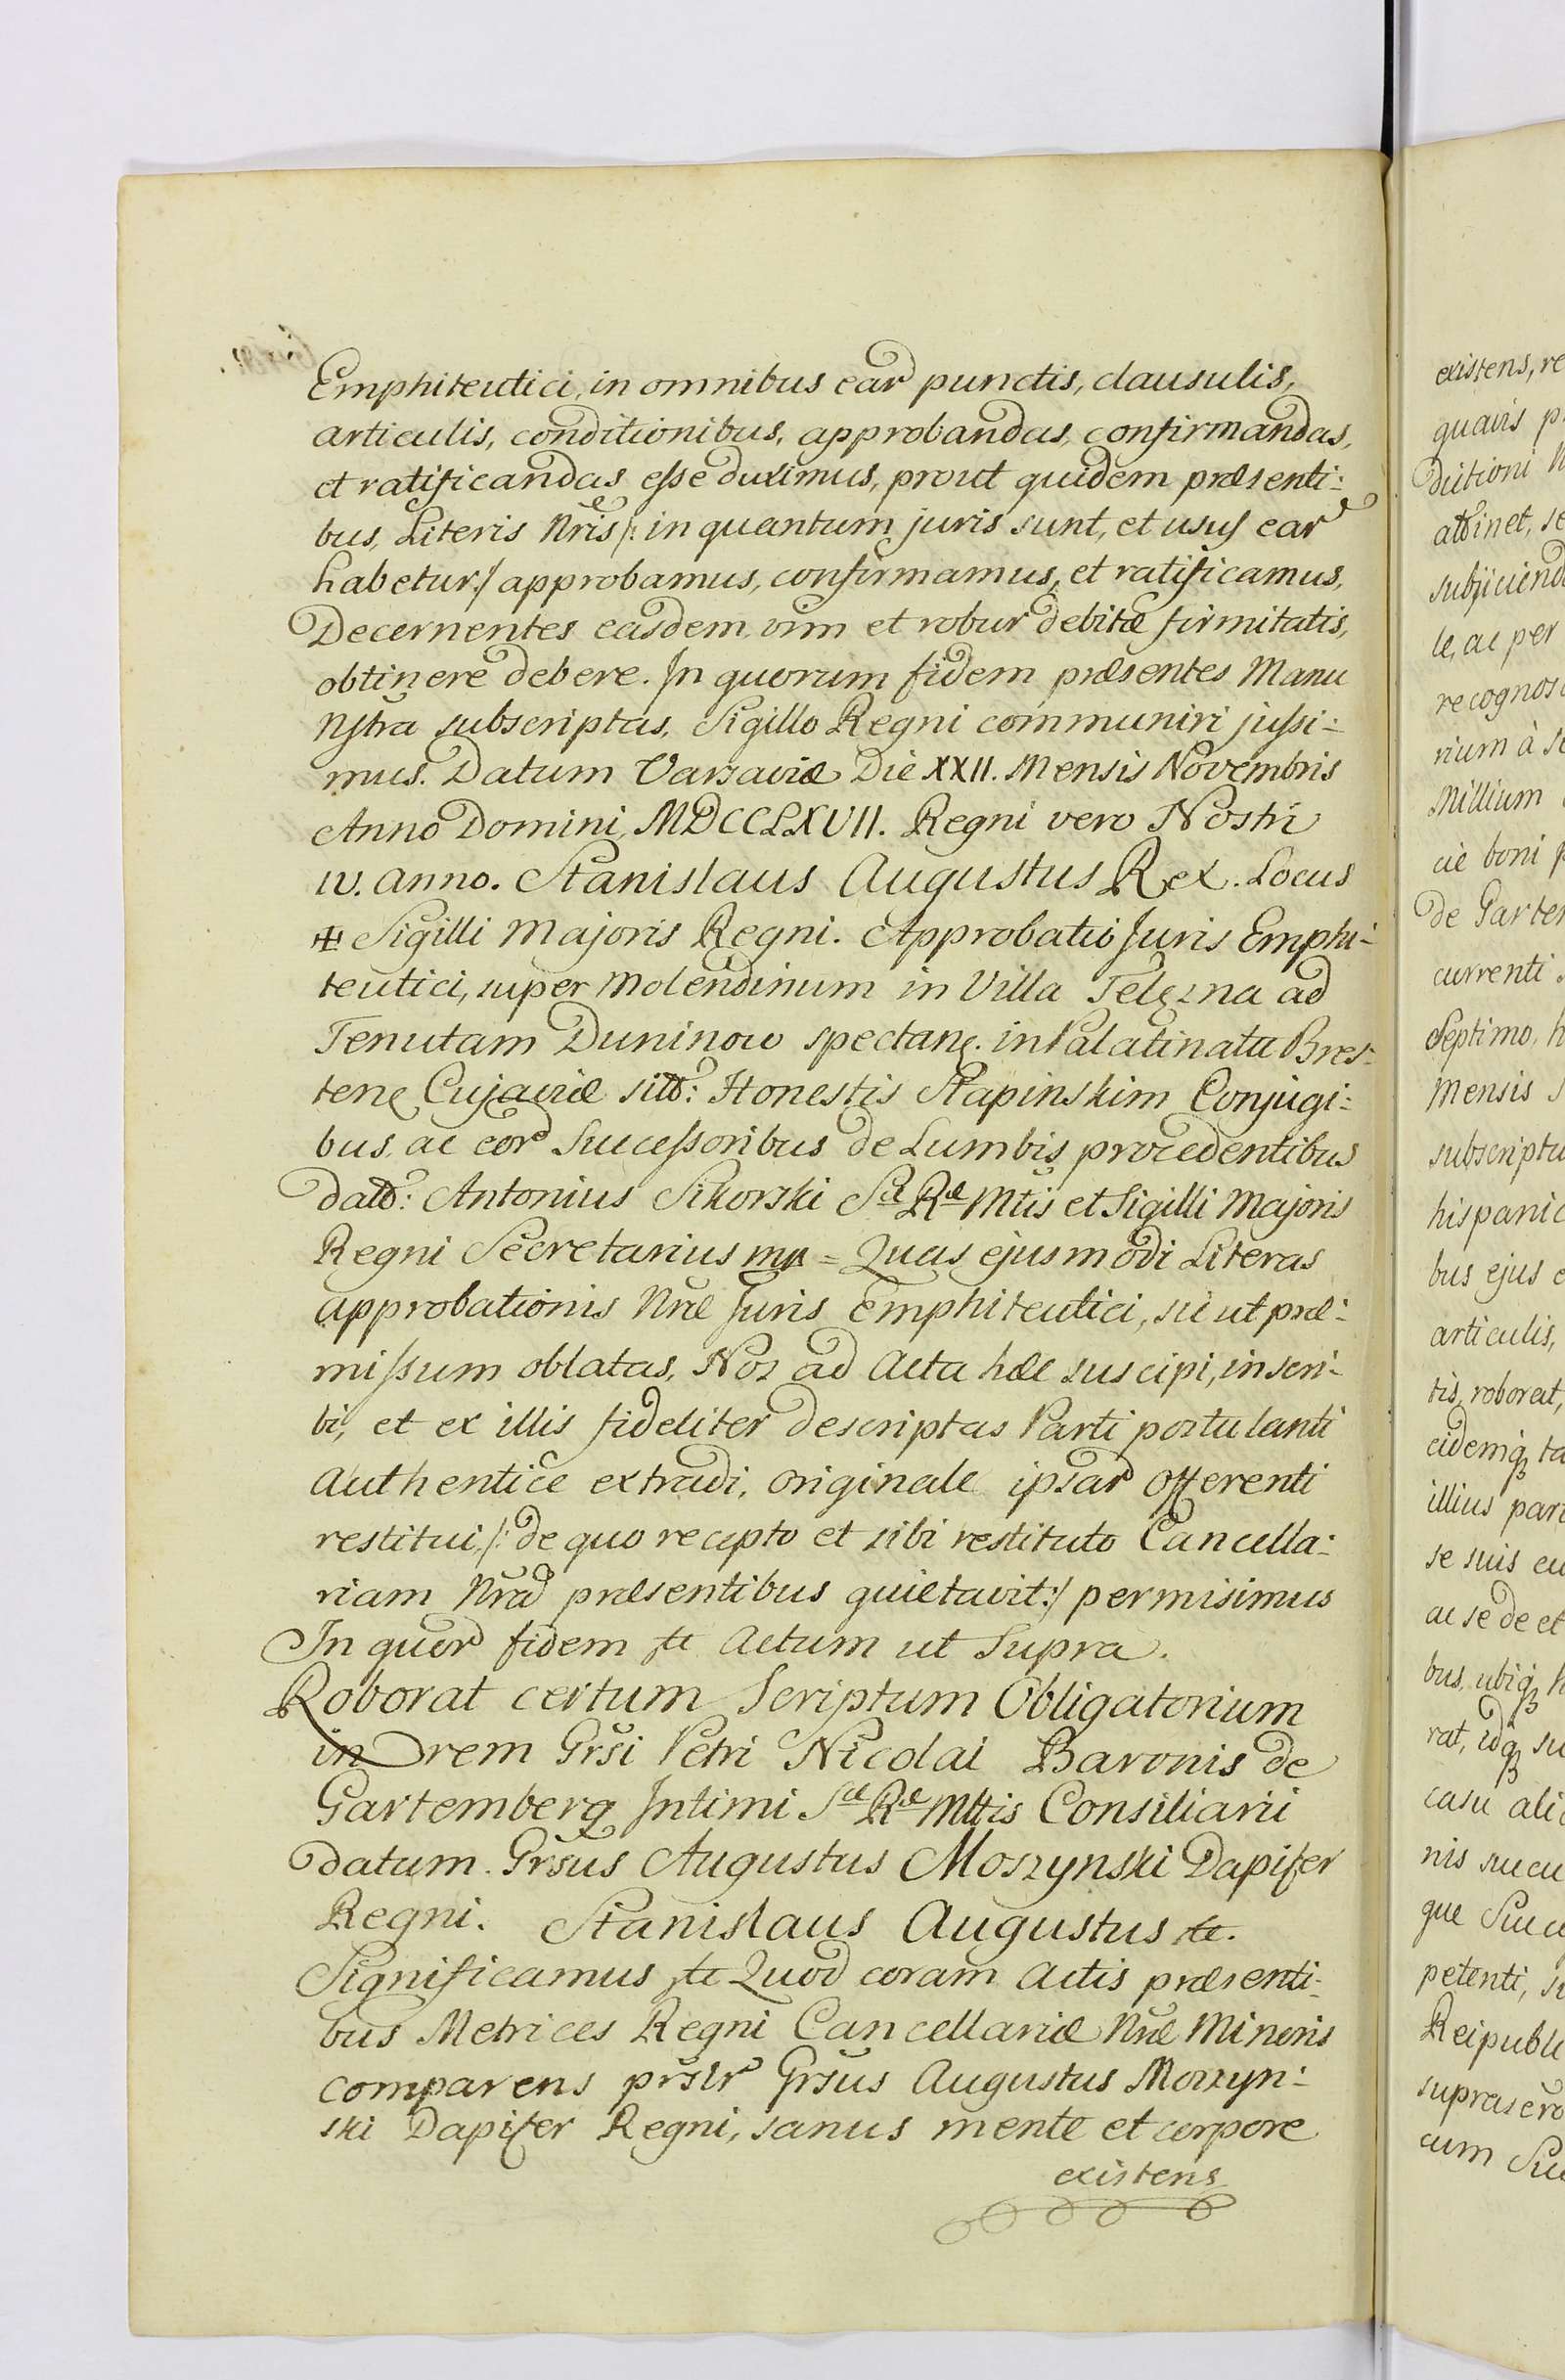 Emphiteutici, in omnibus ear punctis, clausulis,
articulis, conditionibus, approbandas, confirmandas,
et ratificandas esse duximus, prout quidem præsenti:
bus, Literis Nris /: in quantum juris sunt, et usus ear
habetur :/ approbamus, confirmamus, et ratificamus,
Decernentes easdem, vim et robur debitæ firmitatis,
obtinere debere. In quorum fidem præsentes Manu
Nstra subscriptas, Sigillo Regni communiri jussi:
mus. Datum Varsaviæ Die XXII. Mensis Novembris
Anno Domini, MDCCLXVII. Regni vero Nostri
IV. anno. Stanislaus Augustus Rex. Locus
Sigilli Majoris Regni. Approbatio Juris Emphi-
teutici, super Molendinum in Villa Telezna ad
Tenutam Duninow spectan. in Palatinatu Bres:
ten Cujaviæ sitt: Honestis Stapinskim Conjugi:
bus, ac eor Successoribus de Lumbis procedentibus
datt: Antonius Sikorski Sæ Ræ Mtis et Sigilli Majoris
Regni Secretarius mp = Quas ejusmodi Literas
approbationis Nræ Juris Emphiteutici, sic ut præ:
missum oblatas, Nos ad Acta hæc suscipi, inscri-
bi, et ex illis fideliter descriptas Parti postulanti
authentice extradi, originale ipsar Offerenti
restitui, /: de quo recepto et sibi restituto Cancella:
riam Nrad præsentibus quietavit :/ permisimus
In quor fidem etc Actum ut Supra.
Roborat certum Scriptum Obligatorium
in rem Grsi Petri Nicolai Baronis de
Gartemberg Intimi Sæ Ræ Mttis Consiliarii
datum. Grsus Augustus Moszynski Dapifer
Regni. Stanislaus Augustus etc.
Significamus etc Quod coram Actis præsenti-
bus Metrices Regni Cancellariæ Nræ Minoris
comparens prslr Grsus Augustus Moszyn:
ski Dapifer Regni, sanus mente et corpore
existens
existens, re
quavis p
ditioni N
attinet, se
subjiciend
le, ac per
recognos
rium à se
Millium
cie boni p
de Garten
currenti
Septimo, h
Mensis S
subscriptu
hispanic
bus ejus e
articulis,
tis, roborat,
eidemq ta
illius part
se suis eu
ac se de et
bus, ubiq h
rat, idq su
casu alic
nis succu
que Succe
petenti, si
Reipubli
suprascro
cum Suc